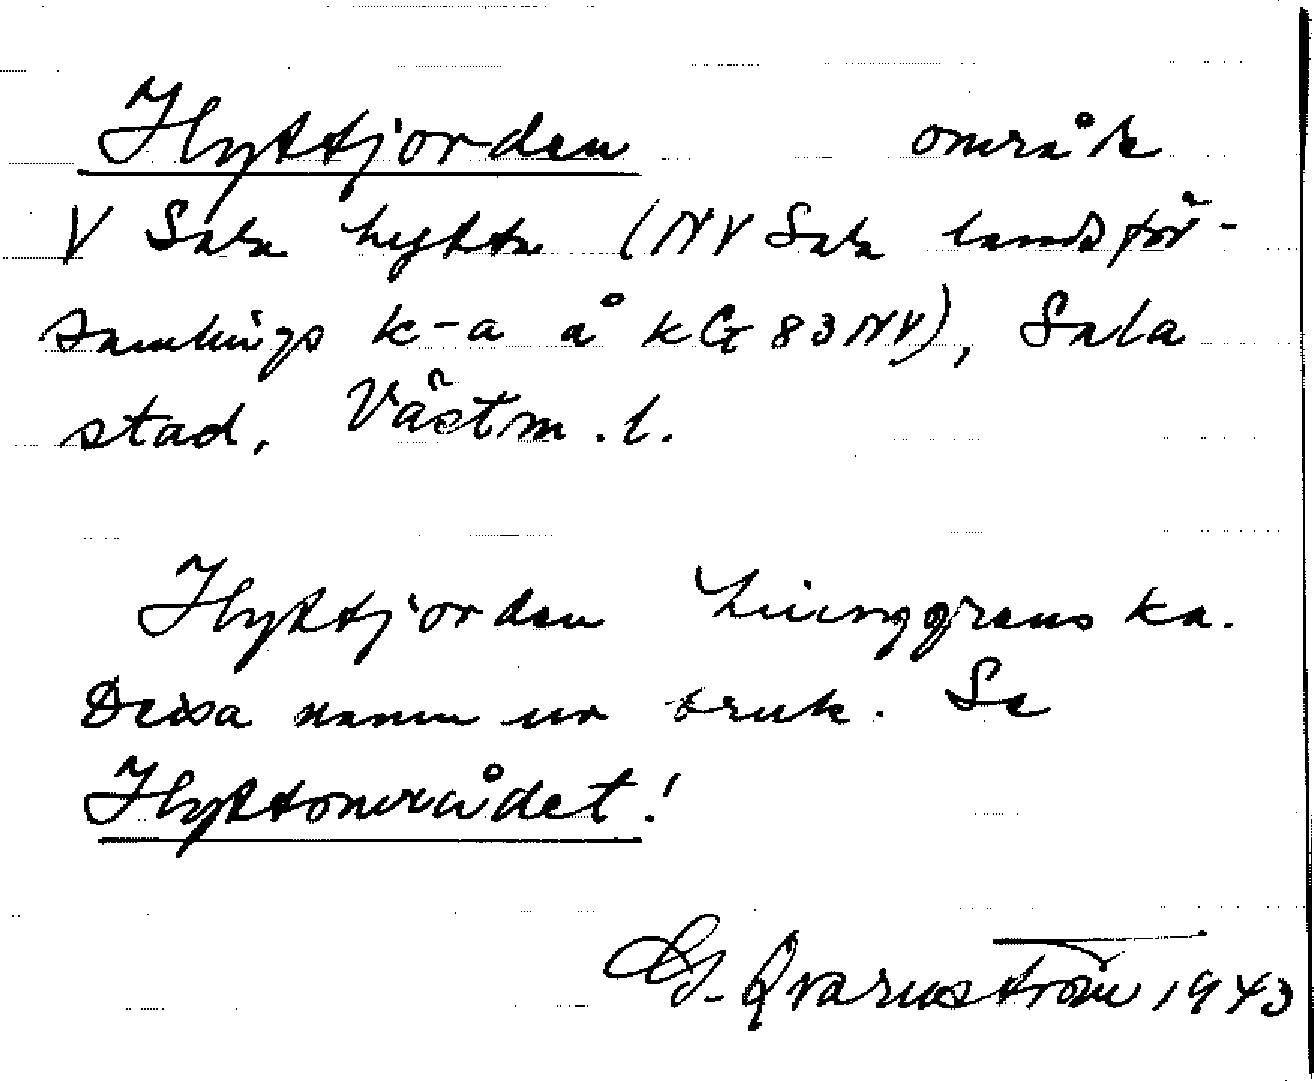 Hyttjorden område
V Sala hytta (NV Sala landsför-
samlings k-a å kG 83NV), Sala
stad, Västm. l.
Hyttjorden
Dessa namn ur bruk. Se
Hyttområdet!
G. Qvarnström 1943